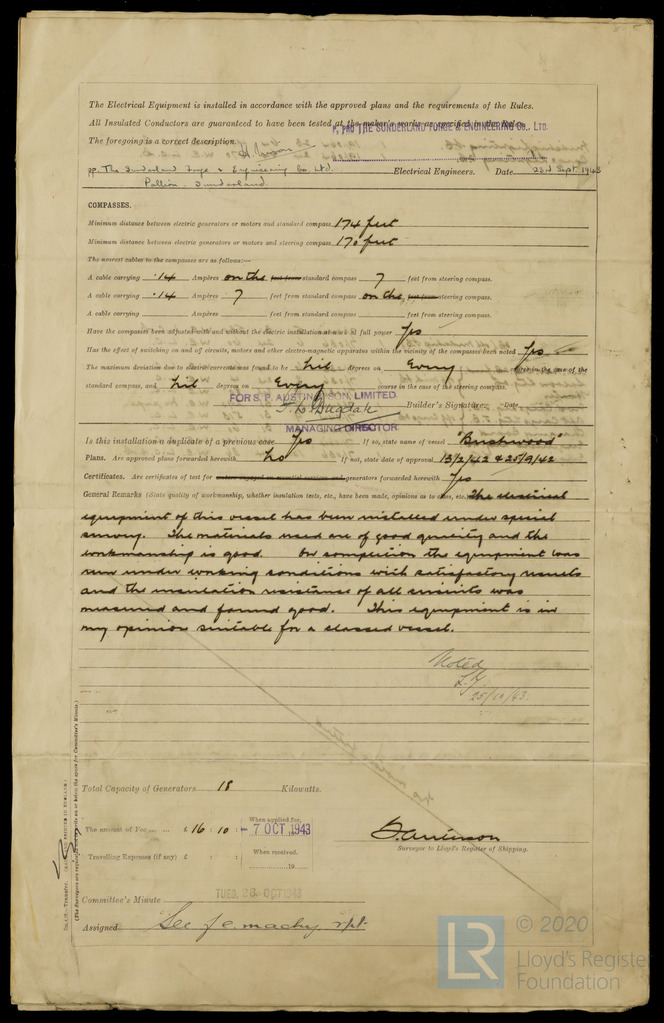 The Electrical Equipment is installed in accordance with the approved plans and the requirements of the Rules.
All Insulated Conductors are guaranteed to have been tested at the maker's works as specified in the Rules.
P. PRO THE SUNDERLAND FORGE & ENGINEERING Co., LTD.
The foregoing is a correct description.
pp. The Sunderland Forge & Engineering Co. Ltd.
Pallion, Sunderland.
Electrical Engineers. Date 23rd Sept. 1943
COMPASSES.
Minimum distance between electric generators or motors and standard compass 174 feet
Minimum distance between electric generators or motors and steering compass 170 feet
The nearest cables to the compasses are as follows:—
A cable carrying .14 Ampères on the feet from standard compass 7 feet from steering compass.
A cable carrying .14 Ampères 7 feet from standard compass on the feet from steering compass.
A cable carrying Ampères feet from standard compass feet from steering compass.
Have the compasses been adjusted with and without the electric installation at work at full power Yes
Has the effect of switching on and off circuits, motors and other electro-magnetic apparatus within the vicinity of the compasses been noted Yes
The maximum deviation due to electric currents was found to be Nil degrees on Every course in the case of the
standard compass, and Nil degrees on Every course in the case of the steering compass.
FOR S. P. AUSTIN & SON, LIMITED.
Builder's Signature. Date
MANAGING DIRECTOR
Is this installation a duplicate of a previous case Yes If so, state name of vessel "Bushwood"
Plans. Are approved plans forwarded herewith No If not, state date of approval 13/2/42 & 25/9/42
Certificates. Are certificates of test for motors engaged on essential services and generators forwarded herewith Yes
General Remarks (State quality of workmanship, whether insulation tests, etc., have been made, opinions as to class, etc.) The electrical
equipment of this vessel has been installed under special
survey. The materials used are of good quality and the
workmanship is good. On completion the equipment was
run under working conditions with satisfactory results
and the insulation resistance of all circuits was
measured and found good. This equipment is in
my opinion suitable for a classed vessel.
Noted
25/10/43
Total Capacity of Generators 18 Kilowatts.
The amount of Fee £ 16 : 10 :
When applied for,
- 7 OCT 1943
When received,
19
Travelling Expenses (if any) £ : :
Surveyor to Lloyd's Register of Shipping.
Committee's Minute TUES. 26 OCT 1943
Assigned See F.E. machy rpt.
(The Surveyors are requested not to write on or below the space for Committee's Minute.)
© 2020
LR
Lloyd's Register
Foundation